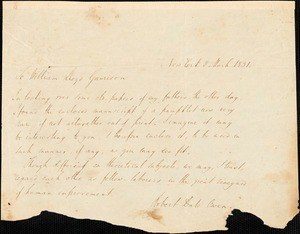 New York 2 March 1851.
To William Lloyd Garrison
In looking over some old papers of my fathers the other day
I found the enclosed manuscript of a pamphlet now very
rare, if not altogether out of print. I imagine it may
be interesting to you. I therefore enclose it, to be used in
such manner, if any, as you may see fit.
Though differing in theoretical schools, we may, I trust,
regard each other as fellow laborers in the great
of human improvement.
Robert Dale Owen